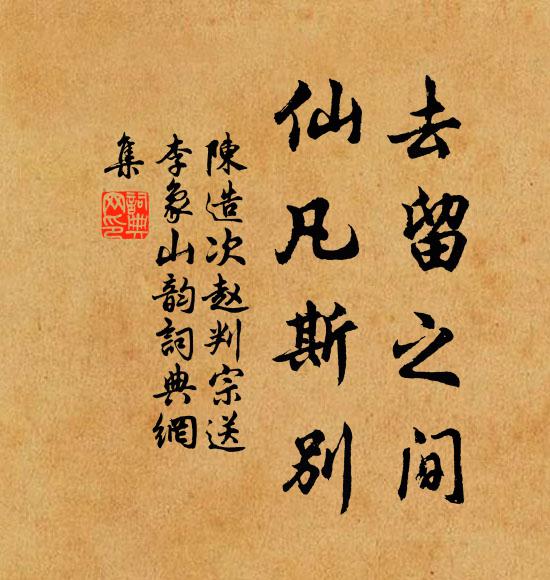 去留之间
仙凡斯别
陳造次赵判宗送
李象山韵詞典網
集
詞典
网印